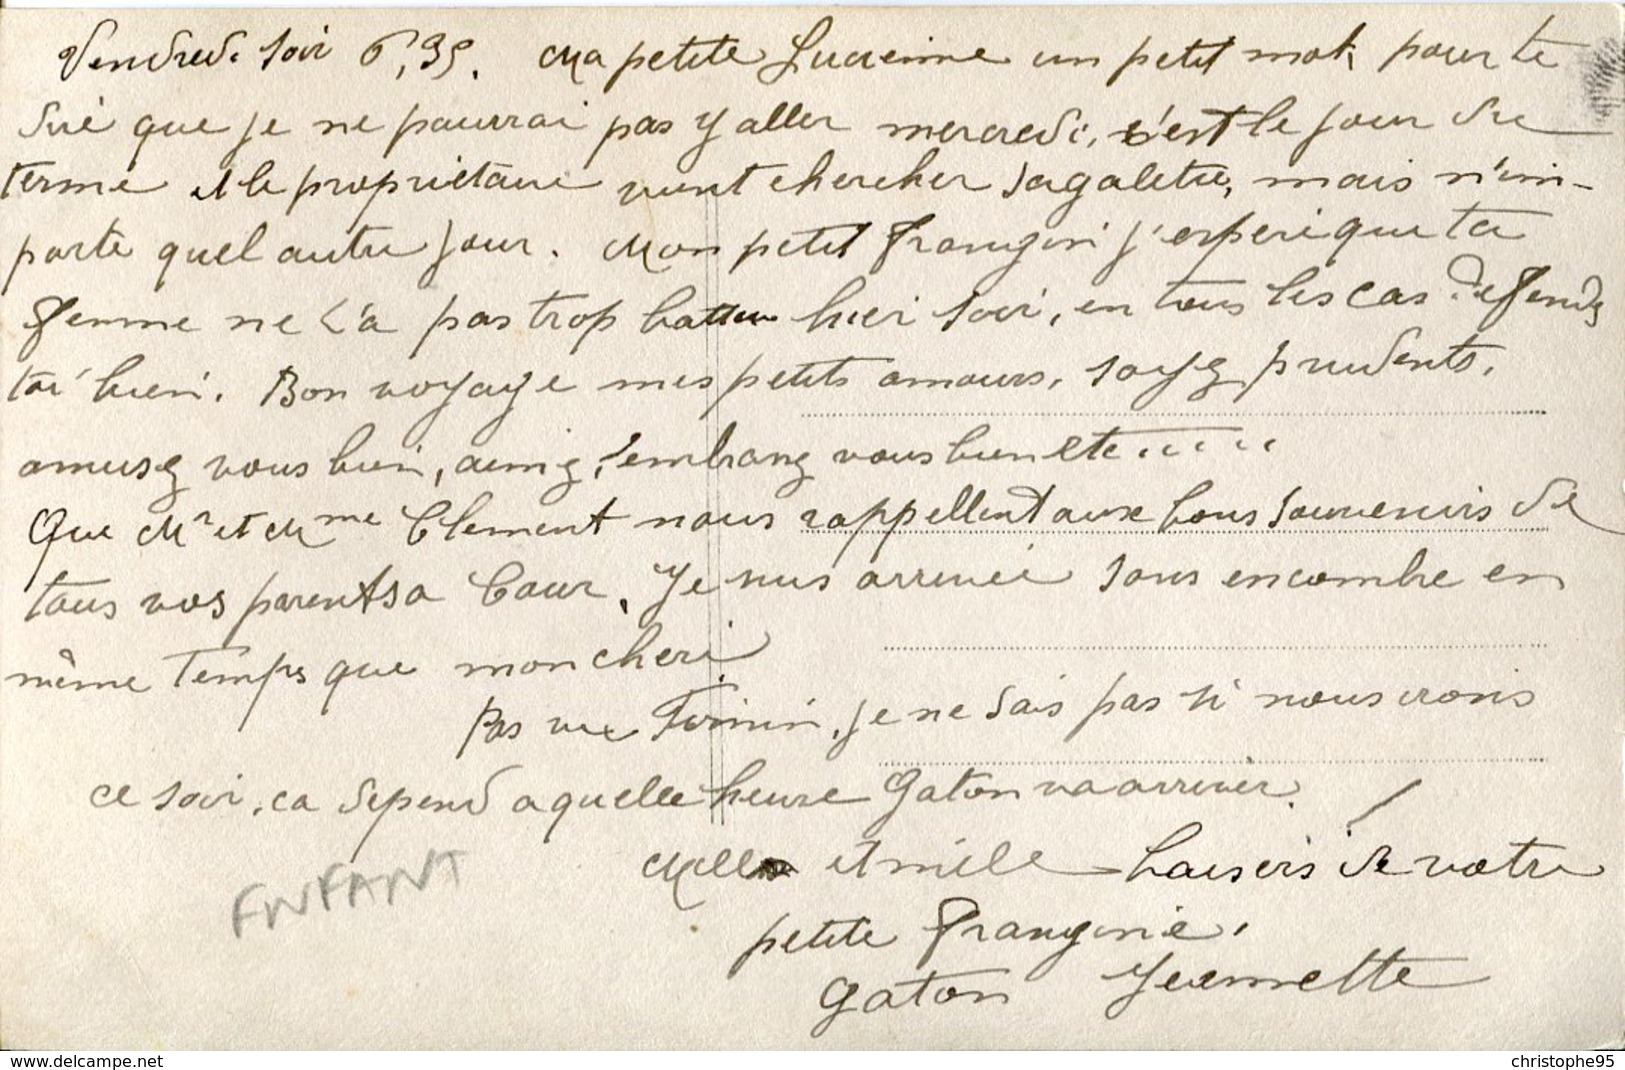 Vendredi soir 6,35. Ma petite Lucienne un petit mot, pour te
dire que je ne pourrai pas y aller mercredi, c'est le jour du
terme et le propriétaire vient chercher sa galette, mais n'im-
porte quel autre jour. Mon petit frangin j'espère que ta
femme ne t'a pas trop battu hier soir, en tous les cas défends
toi bien. Bon voyage mes petits amours, soyez prudents,
amusez vous bien, aimez, embrassez vous bien etc.....
Que Mr et Mme Clement nous rappellent aux bons souvenirs de
tous vos parents a Cour. Je suis arrivée sans encombre en
même temps que mon cheri.
Pas vu Firmin, je ne sais pas si nous irons
ce soir, ca depend a quelle heure Gaton va arriver.
Mille et mille baisers de votre
petite frangine,
Gaton Jeannette
ENFANT
www.delcampe.net
christophe95